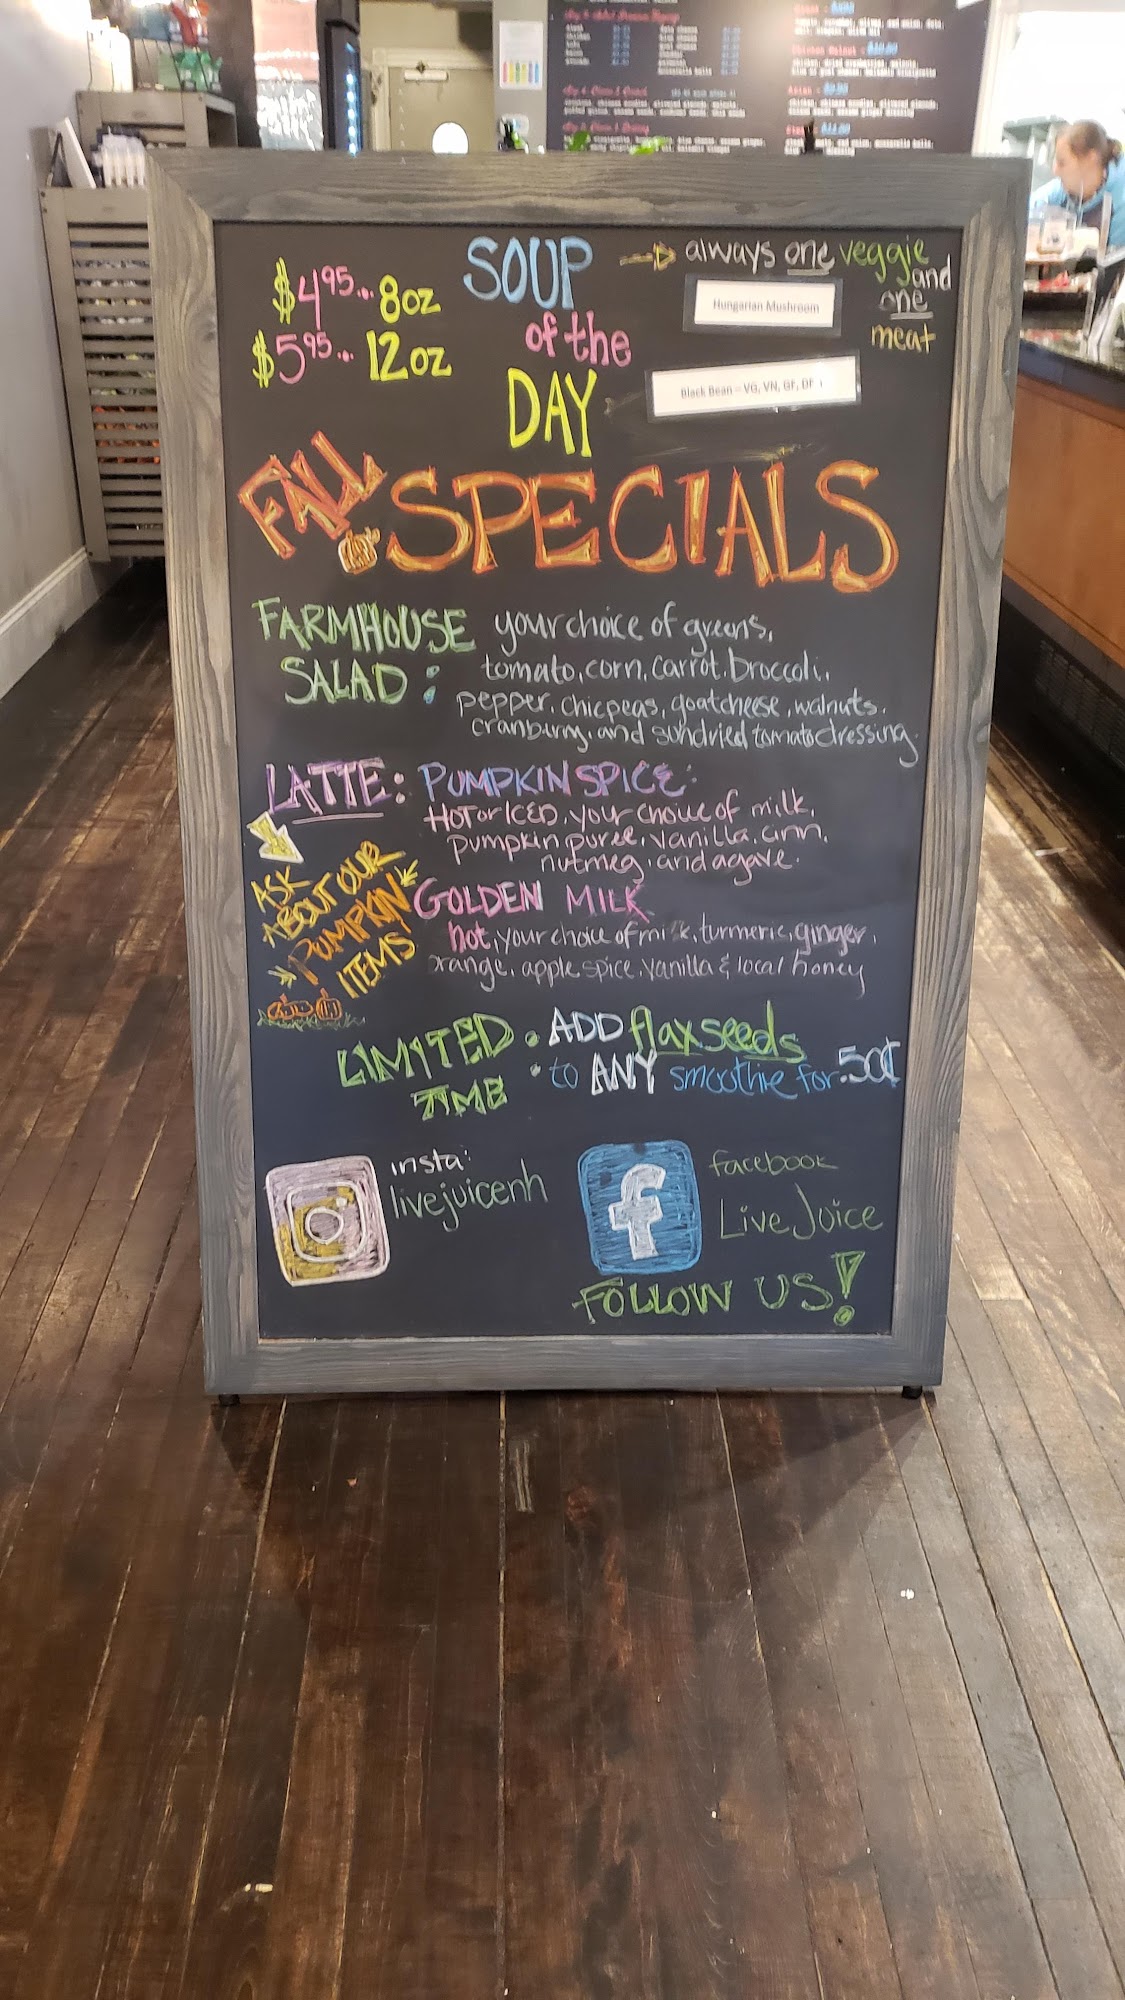 SOUP
of the
DAY
$4.95... 8oz
$5.95... 12oz
always one veggie
and
one
meat
Hungarian Mushroom
Black Bean - VG, VN, GF, DF
FALL SPECIALS
FARMHOUSE
SALAD:
your choice of greens,
tomato, corn, carrot, broccoli,
pepper, chicpeas, goatcheese, walnuts,
cranburry, and sundried tomato dressing.
LATTE: PUMPKIN SPICE:
HOT or ICED, your choice of milk,
pumpkin puree, vanilla, cinn,
nutmeg, and agave.
ASK
ABOUT OUR
PUMPKIN
ITEMS
GOLDEN MILK
hot, your choice of milk, turmeric, ginger,
orange, apple spice, vanilla & local honey
LIMITED
TIME :
ADD flaxseeds
to ANY smoothie for .50¢
insta:
livejuicenh
facebook
Live Juice
FOLLOW US!